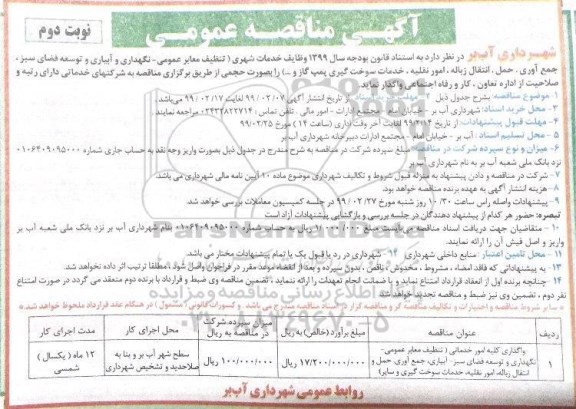 آگهی مناقصه عمومی
نوبت دوم
شهرداری آب‌بر در نظر دارد به استناد قانون بودجه سال ۱۳۹۹ وظایف خدمات شهری ( تنظیف معابر عمومی- نگهداری و آبیاری و توسعه فضای سبز ،
جمع آوری ، حمل ، انتقال زباله ، امور نقلیه ، خدمات سوخت گیری پمپ گاز و ... ) را بصورت حجمی از طریق برگزاری مناقصه به شرکتهای خدماتی دارای رتبه و
صلاحیت از اداره تعاون ، کار و رفاه اجتماعی واگذار نماید.
۱- موضوع مناقصه: بشرح جدول ذیل از تاریخ انتشار آگهی ۹۹/۰۲/۰۷ لغایت ۹۹/۰۲/۱۷ می‌باشد.
۳- محل خرید اسناد: شهرداری آب بر - خیابان امام - مجتمع ادارات - امور مالی . تلفن تماس: ۰۲۴۳۴۸۲۲۷۱۴ مراجعه نمایند.
۴- مهلت قبول پیشنهادات: از تاریخ لغایت آخر وقت اداری (ساعت ۱۴) مورخ ۹۹/۰۲/۲۵
۵- محل تسلیم اسناد : آب بر - خیابان امام - مجتمع ادارات دبیرخانه شهرداری آب‌بر
۶- میزان و نوع سپرده شرکت در مناقصه: مبلغ سپرده شرکت در مناقصه به شرح مندرج در جدول ذیل بصورت واریز وجه نقد به حساب جاری شماره ۰۱۰۶۴۰۹۰۹۵۰۰۰
نزد بانک ملی شعبه آب بر به نام شهرداری آب‌بر
۷- شرکت در مناقصه و دادن پیشنهاد به منزله قبول شروط و تکالیف شهرداری موضوع ماده ۱۰ آیین نامه مالی شهرداری می باشد.
۸- هزینه انتشار آگهی به عهده برنده مناقصه خواهد بود.
۹- پیشنهادات واصله راس ساعت ۱۰/۳۰ روز شنبه مورخ ۹۹/۰۲/۲۷ در جلسه کمیسیون معاملات بررسی خواهد شد.
تبصره: حضور هر کدام از پیشنهاد دهندگان در جلسه بررسی و بازگشایی پیشنهادات آزاد است
۱۰- متقاضیان جهت دریافت اسناد مناقصه می باشد مبلغ ۱/۰۰۰/۰۰۰ ریال به حساب شماره ۰۱۰۶۴۰۹۰۹۵۰۰۰ بنام شهرداری آب بر نزد بانک ملی شعبه آب بر
واریز و اصل فیش آن را ارائه نمایند.
۱۱- محل تامین اعتبار : منابع داخلی شهرداری ۱۲- شهرداری در رد یا قبول یک یا تمام پیشنهادات مختار می باشد.
۱۳- به پیشنهاداتی که فاقد امضاء ، مشروط ، مخدوش ، ناقص ، بدون سپرده و بعد از انقضاء موعد مقرر در فراخوان واصل شود ،مطلقا ترتیب اثر داده نخواهد شد.
۱۴- چنانچه برنده اول از انعقاد قرارداد امتناع نماید و یا ضمانت انجام تعهدات را ارائه ننماید ، تضمین مناقصه وی ضبط و قرارداد با برنده دوم منعقد می گردد در صورت امتناع
نفر دوم ، تضمین وی نیز ضبط و مناقصه تجدید خواهد شد.
ردیف
عنوان مناقصه
مبلغ برآورد (خالص) به ریال
میزان سپرده شرکت در مناقصه به ریال
محل اجرای کار
مدت اجرای کار
۱
واگذاری کلیه امور خدماتی ( تنظیف معابر عمومی-
نگهداری و توسعه فضای سبز - آبیاری، جمع آوری، حمل و
انتقال زباله، امور نقلیه، خدمات سوخت گیری و سایر)
۱۷/۲۰۰/۰۰۰/۰۰۰ ریال
۱۰۰/۰۰۰/۰۰۰ ریال
سطح شهر آب بر و بنا به
صلاحدید و تشخیص شهرداری
۱۲ ماه ( یکسال )
شمسی
روابط عمومی شهرداری آب‌بر